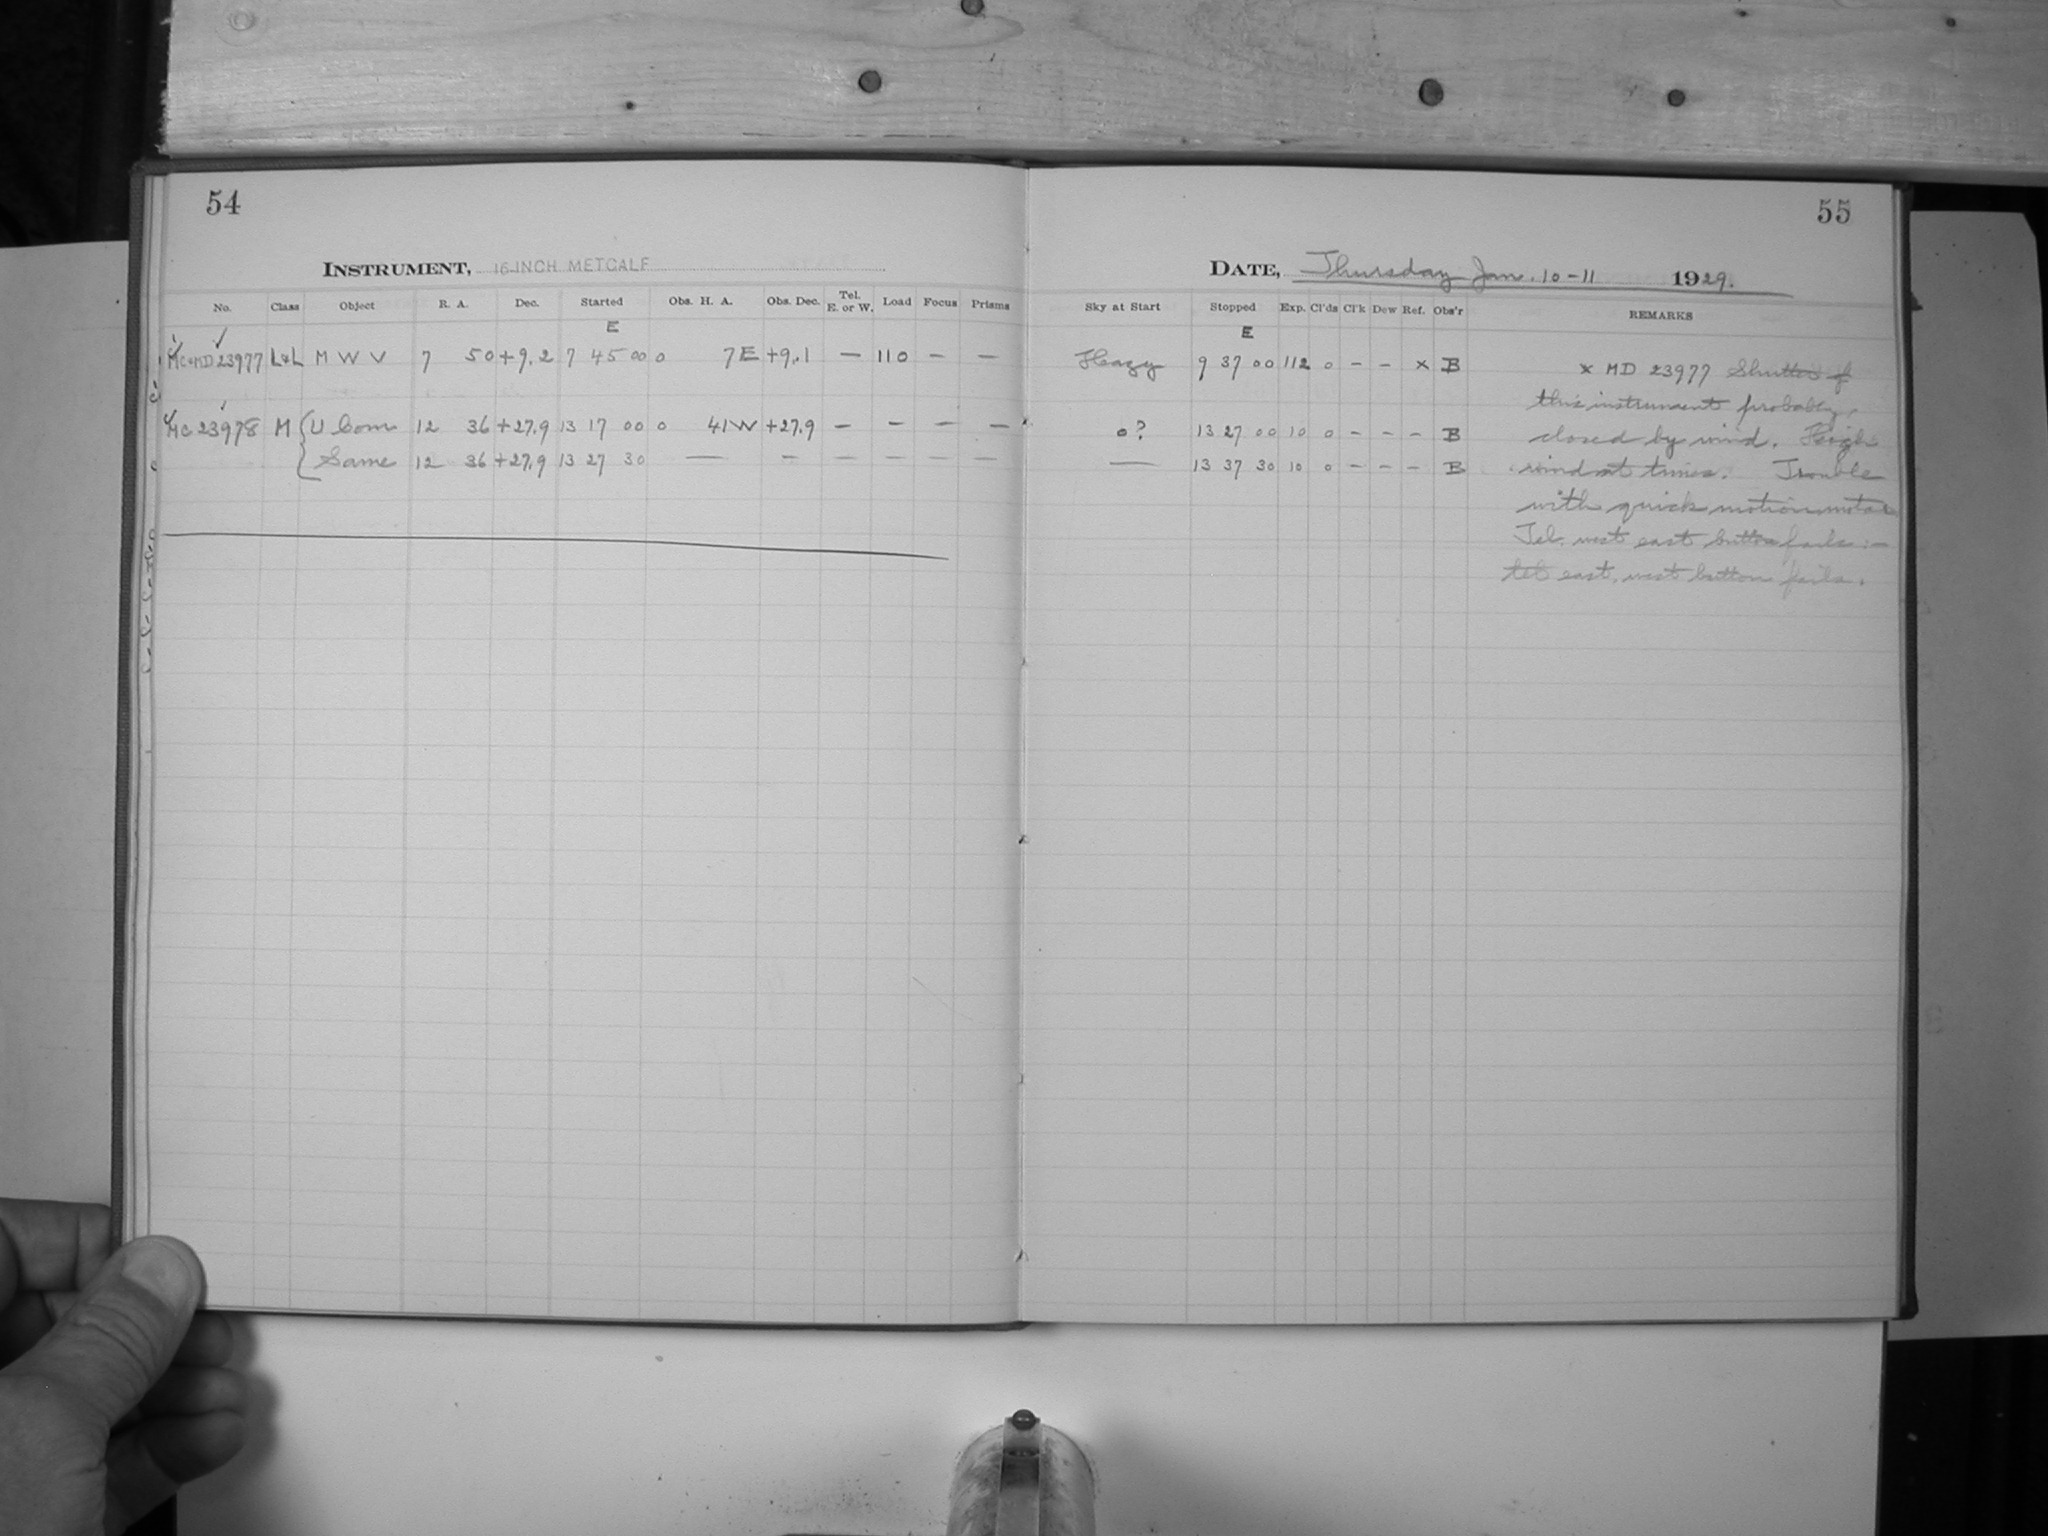 54
55
INSTRUMENT, 16-INCH METCALF
DATE, Thursday Jan. 10-11 1929.
No. Class Object R. A. Dec. Started Obs. H. A. Obs. Dec. Tel. E. or W. Load Focus Prisms
Sky at Start Stopped Exp. Cl'ds Cl'k Dew Ref. Obs'r REMARKS
E
E
MC+MD 23977 L+L M W V 7 50 +9.2 7 45 00 0 7E +9.1 — 110 — —
Hazy 9 37 00 112 0 - - x B x MD 23977 Shutter of
this instrument probably
MC 23978 M U Com 12 36 +27.9 13 17 00 0 41W +27.9 — — — —
0? 13 27 00 10 0 - - - B closed by wind. High
Same 12 36 +27.9 13 27 30 — — — — — —
— 13 37 30 10 0 - - - B wind at times. Trouble
with quick motion motor
Tel. west east button fails :—
tel east, west button fails.